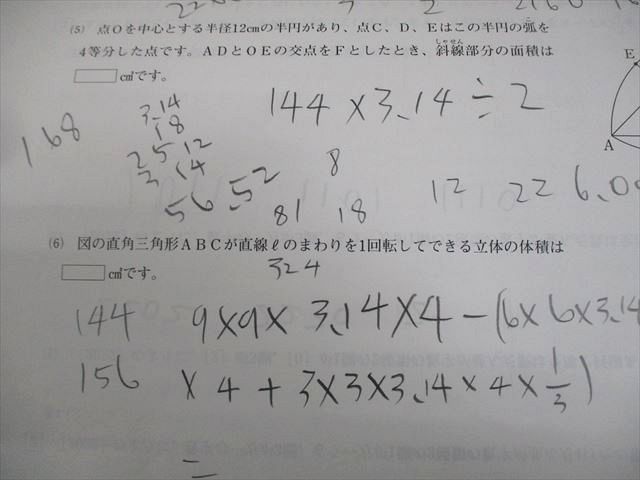 (5) 点Oを中心とする半径12cmの半円があり、点C、D、Eはこの半円の弧を
4等分した点です。ADとOEの交点をFとしたとき、斜線部分の面積は
しゃせん
㎠です。
E
A
144 × 3.14 ÷ 2
168
3.14
18
25 12
3 14
56.52
8
81 18
12 22 6.0
(6) 図の直角三角形ABCが直線ℓのまわりを1回転してできる立体の体積は
㎤です。
324
144 9×9× 3.14×4 - (6×6×3.14
156 × 4 + 3×3×3.14×4×1/3)
=